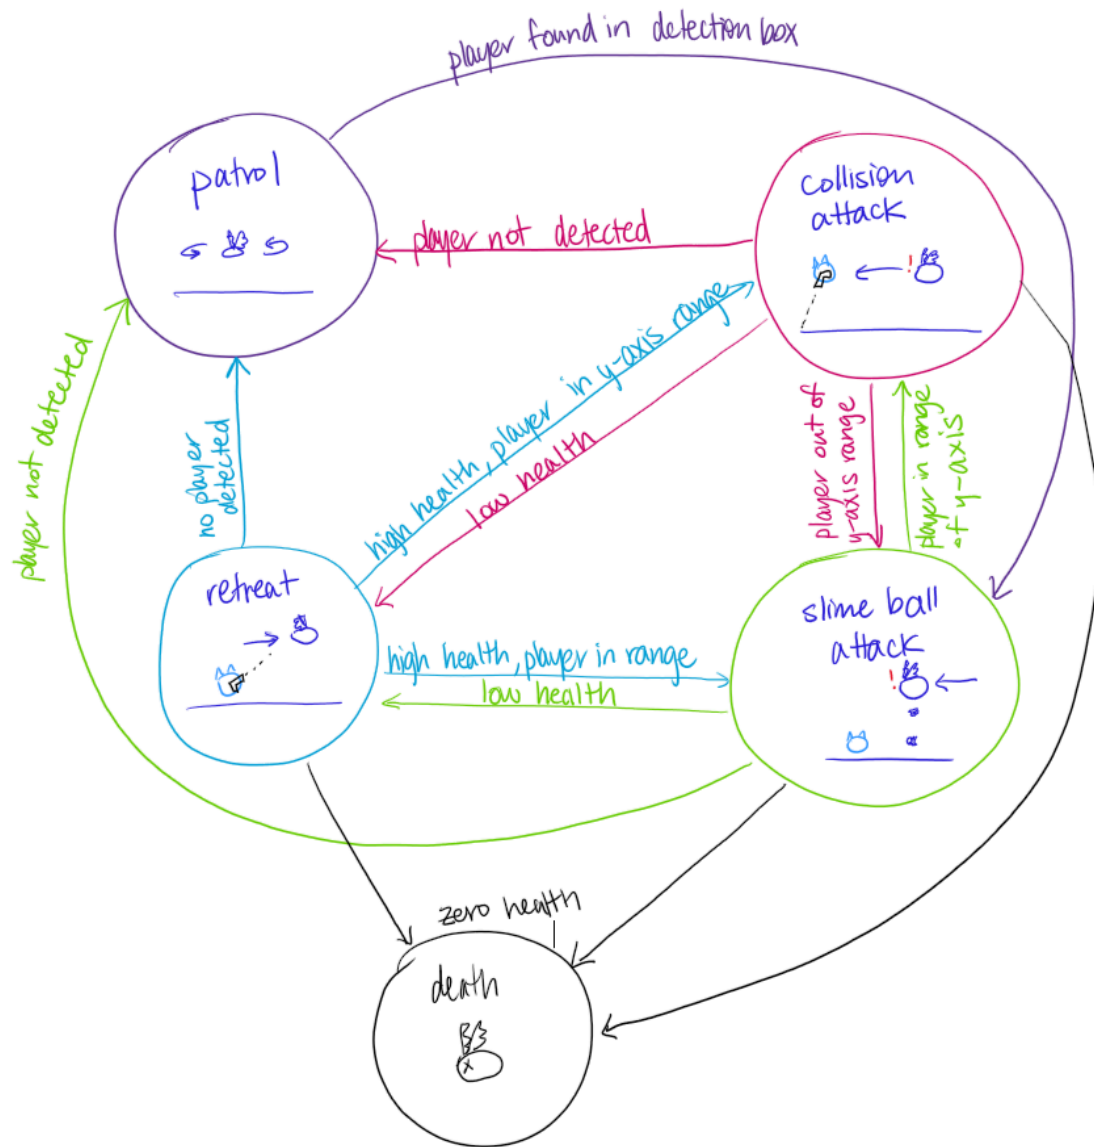 player found in detection box
patrol
collision
attack
!
player not detected
player not detected
no player
detected
high health, player in y-axis range
low health
player out of
y-axis range
player in range
of y-axis
retreat
high health, player in range
low health
slime ball
attack
!
zero health
death
x